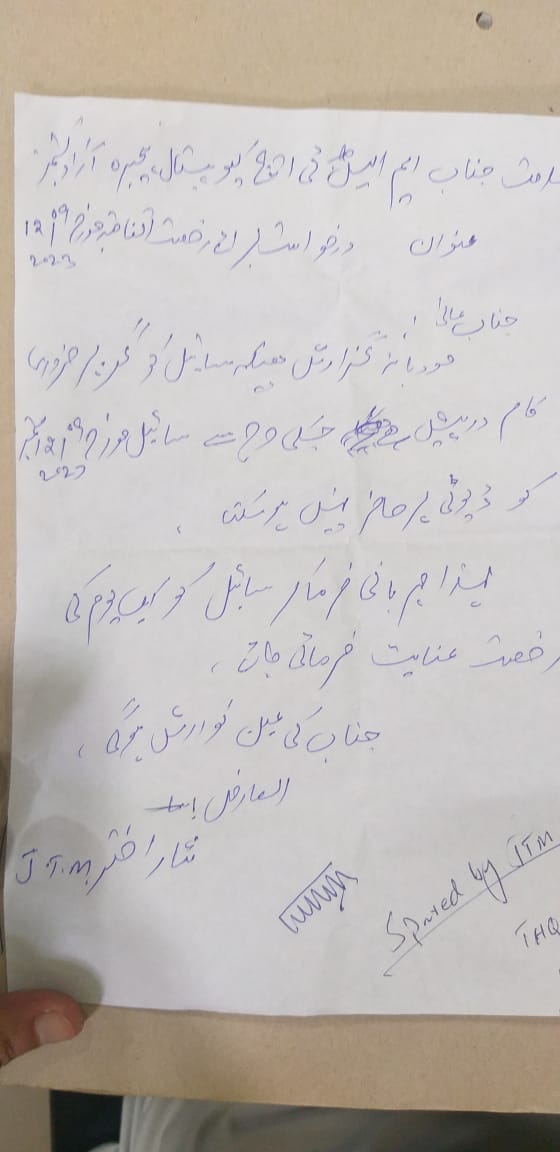 جناب ایم ایس ٹی ایچ کیو ہسپتال ہجیرہ آزاد کشمیر
عنوان درخواست برائے رخصت اتفاقیہ مورخہ 12/09 2023
جناب عالی!
مودبانہ گزارش ہیکہ سائیل کو گھریلو ضروری
کام درپیش ہے جسکی وجہ سے سائیل مورخہ 12/09 2023
کو ڈیوٹی پر حاضر نہیں ہو سکتا ۔
لہذا مہربانی فرما کر سائیل کو ایک یوم کی
رخصت عنایت فرمائی جائے ،
جناب کی عین نوازش ہوگی ،
العارض
نثار اختر J.T.M
Spared by JTM
THQ